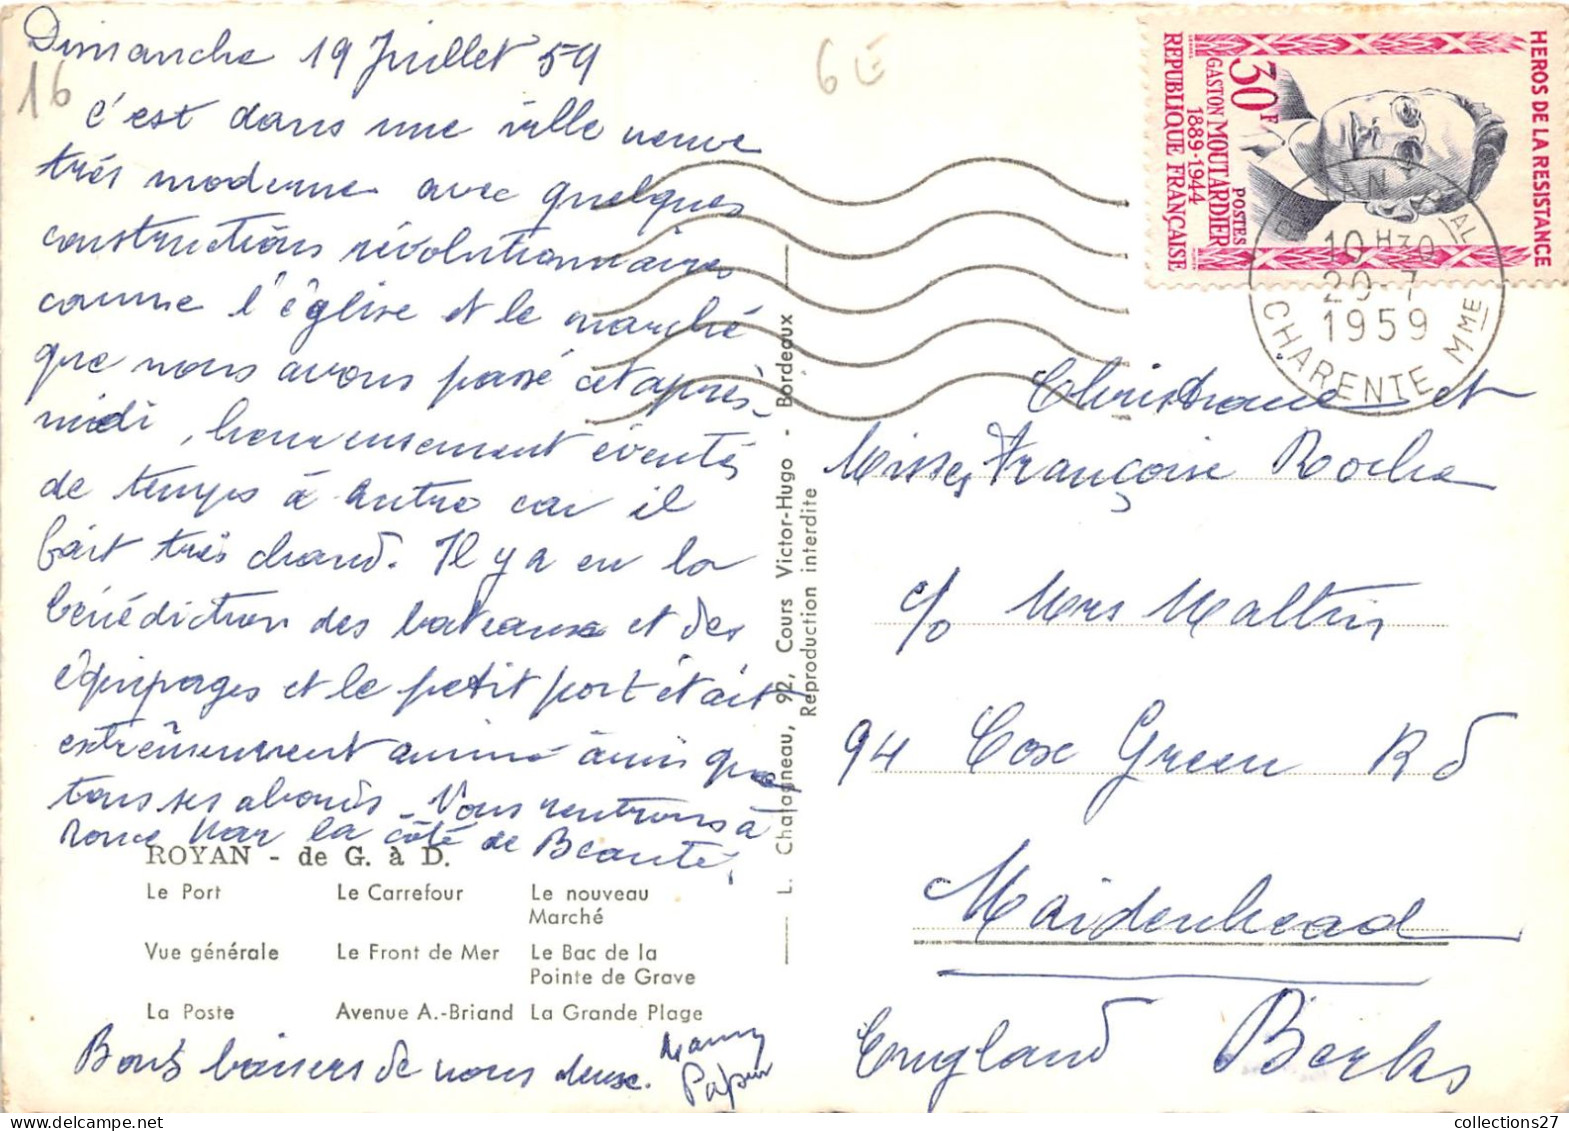 Dimanche 19 Juillet 59
16
6E
c'est dans une ville neuve
très moderne avec quelques
constructions révolutionnaires
comme l'église et le marché
que nous avons passé cet après-
midi, heureusement éventés
de temps à autre car il
fait très chaud. Il y a eu la
bénédiction des bateaux et des
équipages et le petit port était
extrêmement animé ainsi que
tous ses abords. Nous rentrons à
par la côté de Beauté.
ROYAN - de G. à D.
Le Port Le Carrefour Le nouveau
Marché
Vue générale Le Front de Mer Le Bac de la
Pointe de Grave
La Poste Avenue A.-Briand La Grande Plage
Bons baisers de nous deux.
Papun
L. Chatagneau, 92, Cours Victor-Hugo - Bordeaux
Reproduction interdite
HEROS DE LA RESISTANCE
30F
POSTES
GASTON MOUTARDIER
1889-1944
REPUBLIQUE FRANÇAISE
10H30
20-7
1959
CHARENTE MME
Christiane et
Misses Françoise Roche
c/o Mrs Maltin
94 Cox Green Rd
Maidenhead
England Berks
collections27